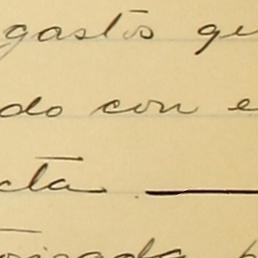 gastos qu
do con e
cta